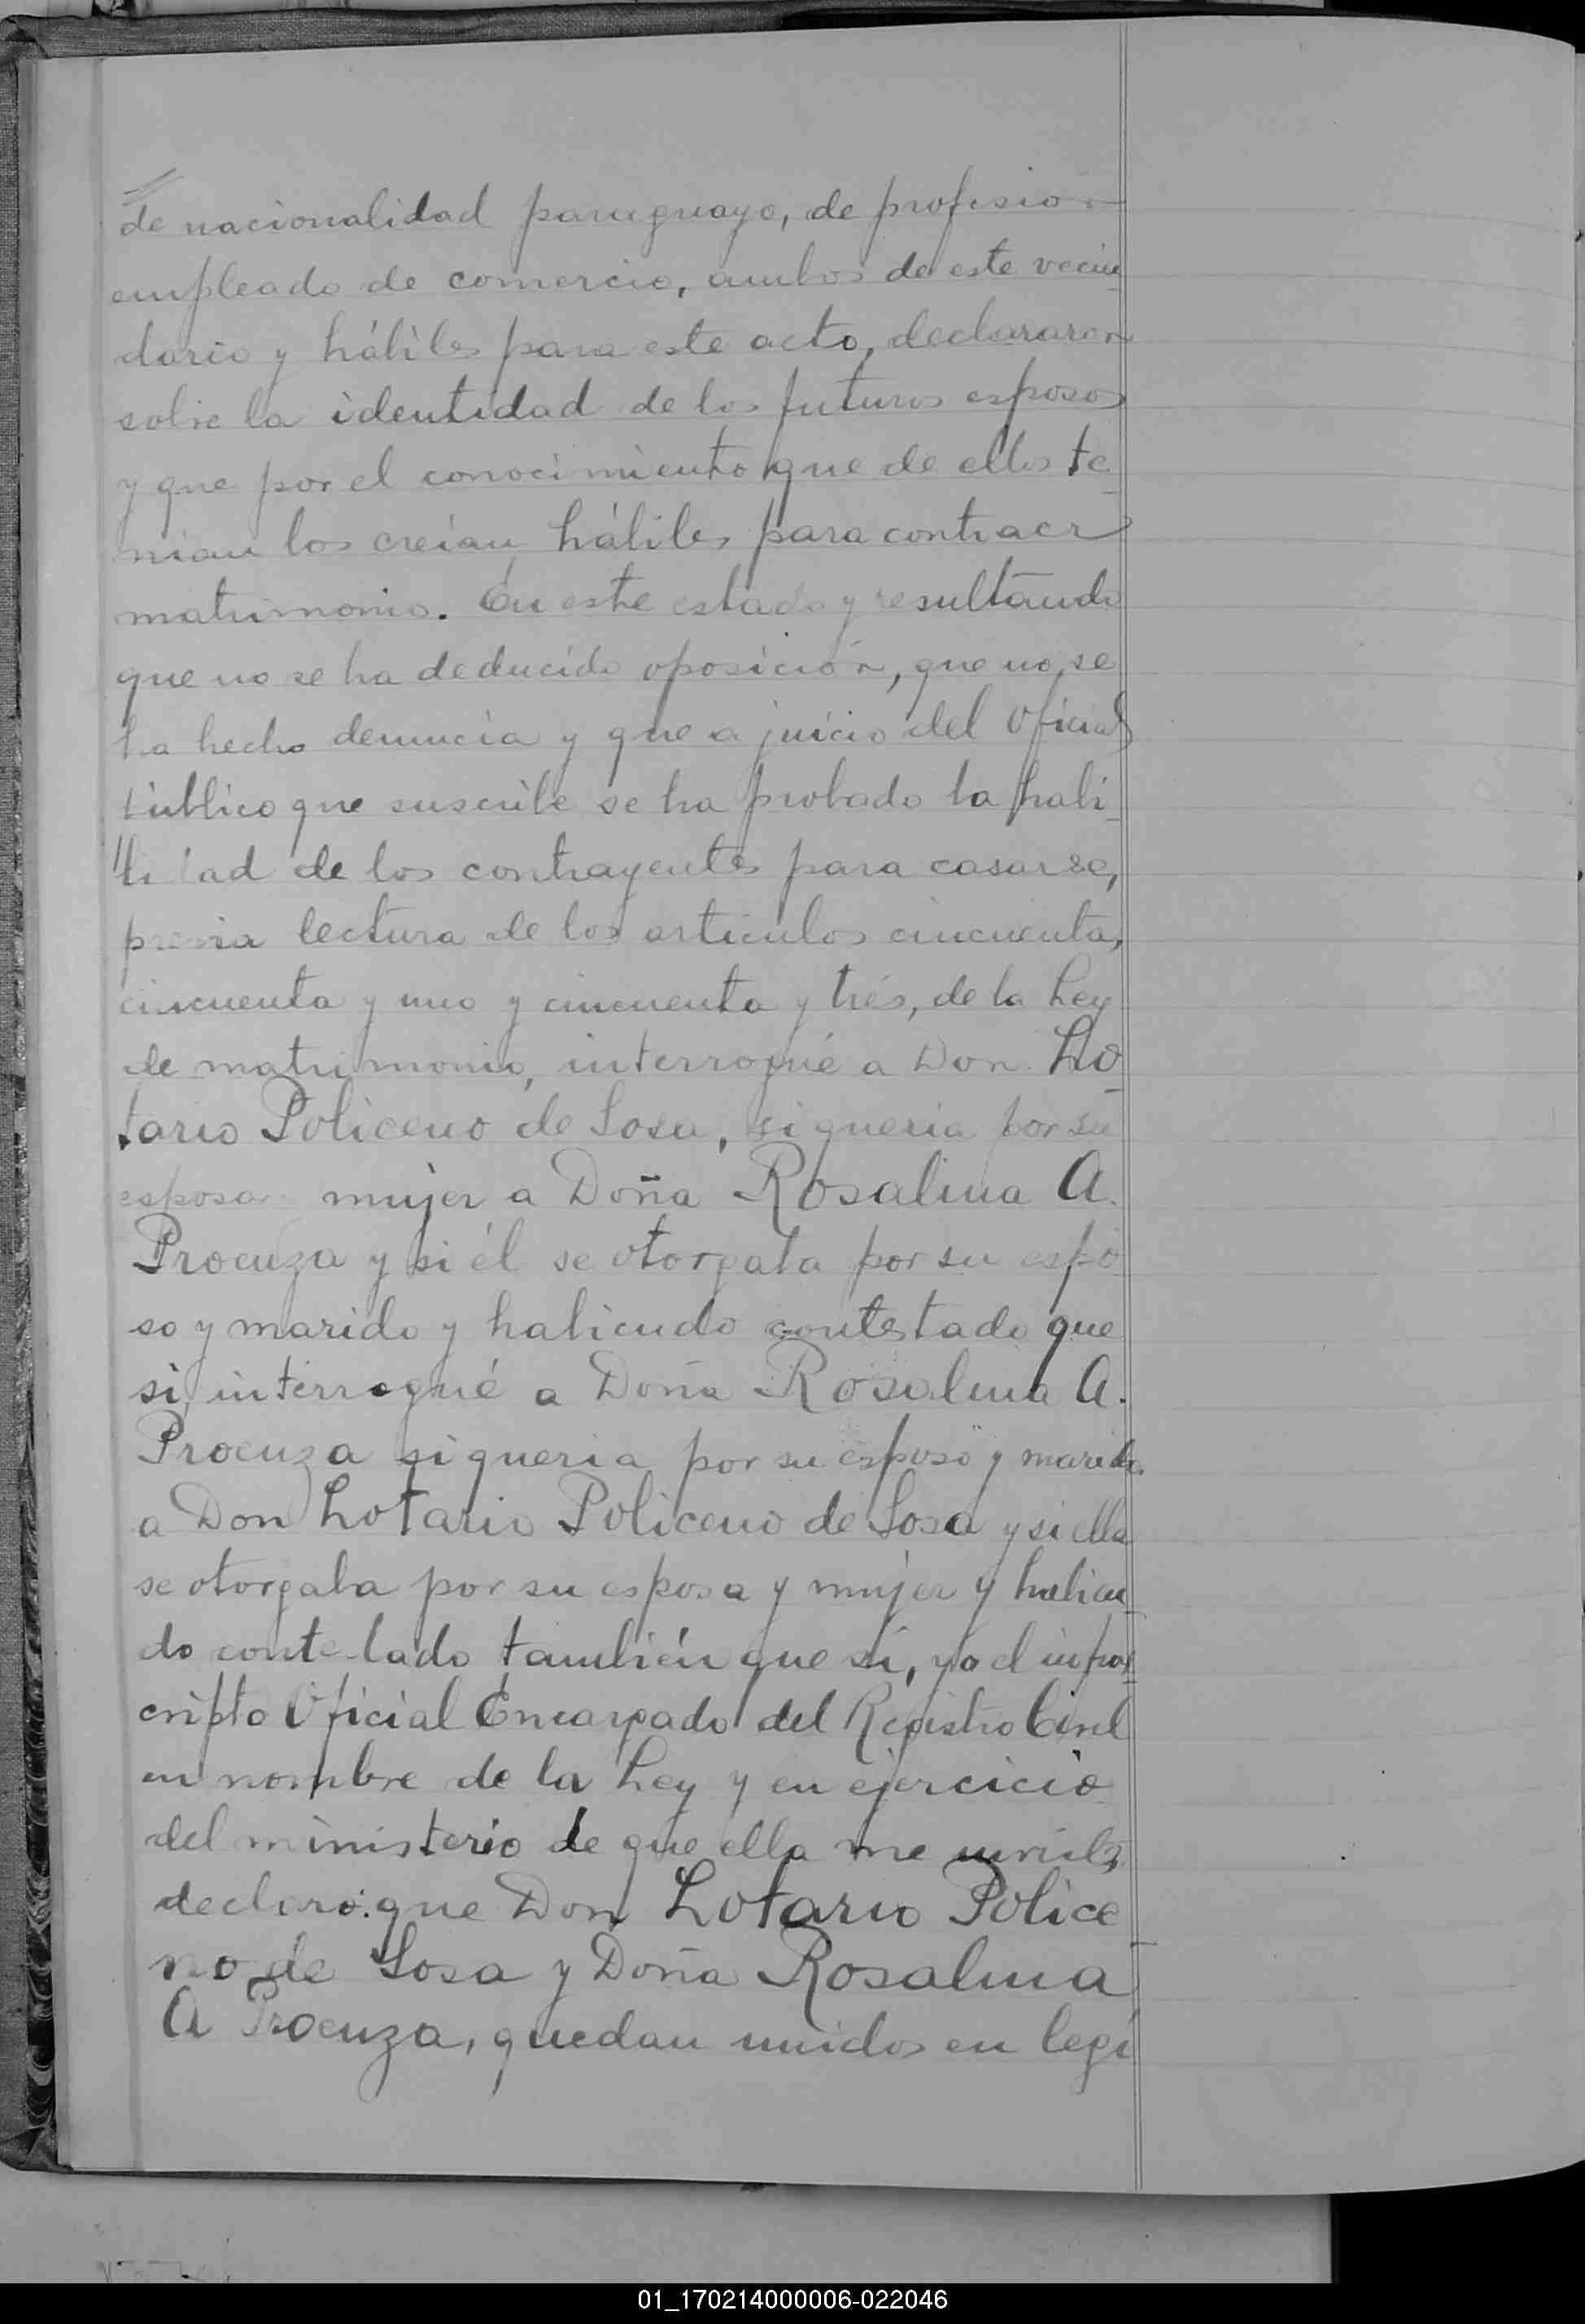 de nacionalidad paraguayo, de profesión
empleado de comercio, ambos de este vecin
dario y hábiles para este acto, declararon
sobre la identidad de los futuros esposos
y que por el conocimiento que de ellos te-
nian los creian hábiles para contraer
matrimonio. En este estado y resultando
que no se ha deducido oposición, que no se
ha hecho denuncia y que a juicio del Oficial
Público que suscribe se ha probado la habi-
lidad de los contrayentes para casarse,
previa lectura de los articulos cincuenta,
cincuenta y uno y cincuenta y trés, de la Ley
de matrimonio, interrogué a Don Lo-
tario Policeno de Sosa, si queria por su
esposa mujer a Doña Rosalina A.
Proenza y si él se otorgaba por su espo
so y marido y habiendo contestado que
si, interrogué a Doña Rosalina A.
Proenza si queria por su esposo y marido
a Don Lotario Policeno de Sosa y si ella
se otorgaba por su esposa y mujer y habien-
do contestado también que sí, yo el
cripto Oficial Encargado del Registro Civil
en nombre de la Ley y en ejercicio
del ministerio de que ella me
declaro: que Don Lotario Police
no de Sosa y Doña Rosalina
A Proenza, quedan unidos en legí
01_170214000006-022046